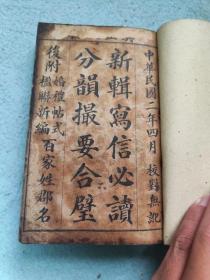 中華民國二年四月 校對無訛
新輯寫信必讀
分韻撮要合璧
後附 婚禮帖式 楹聯新編 百家姓郡名